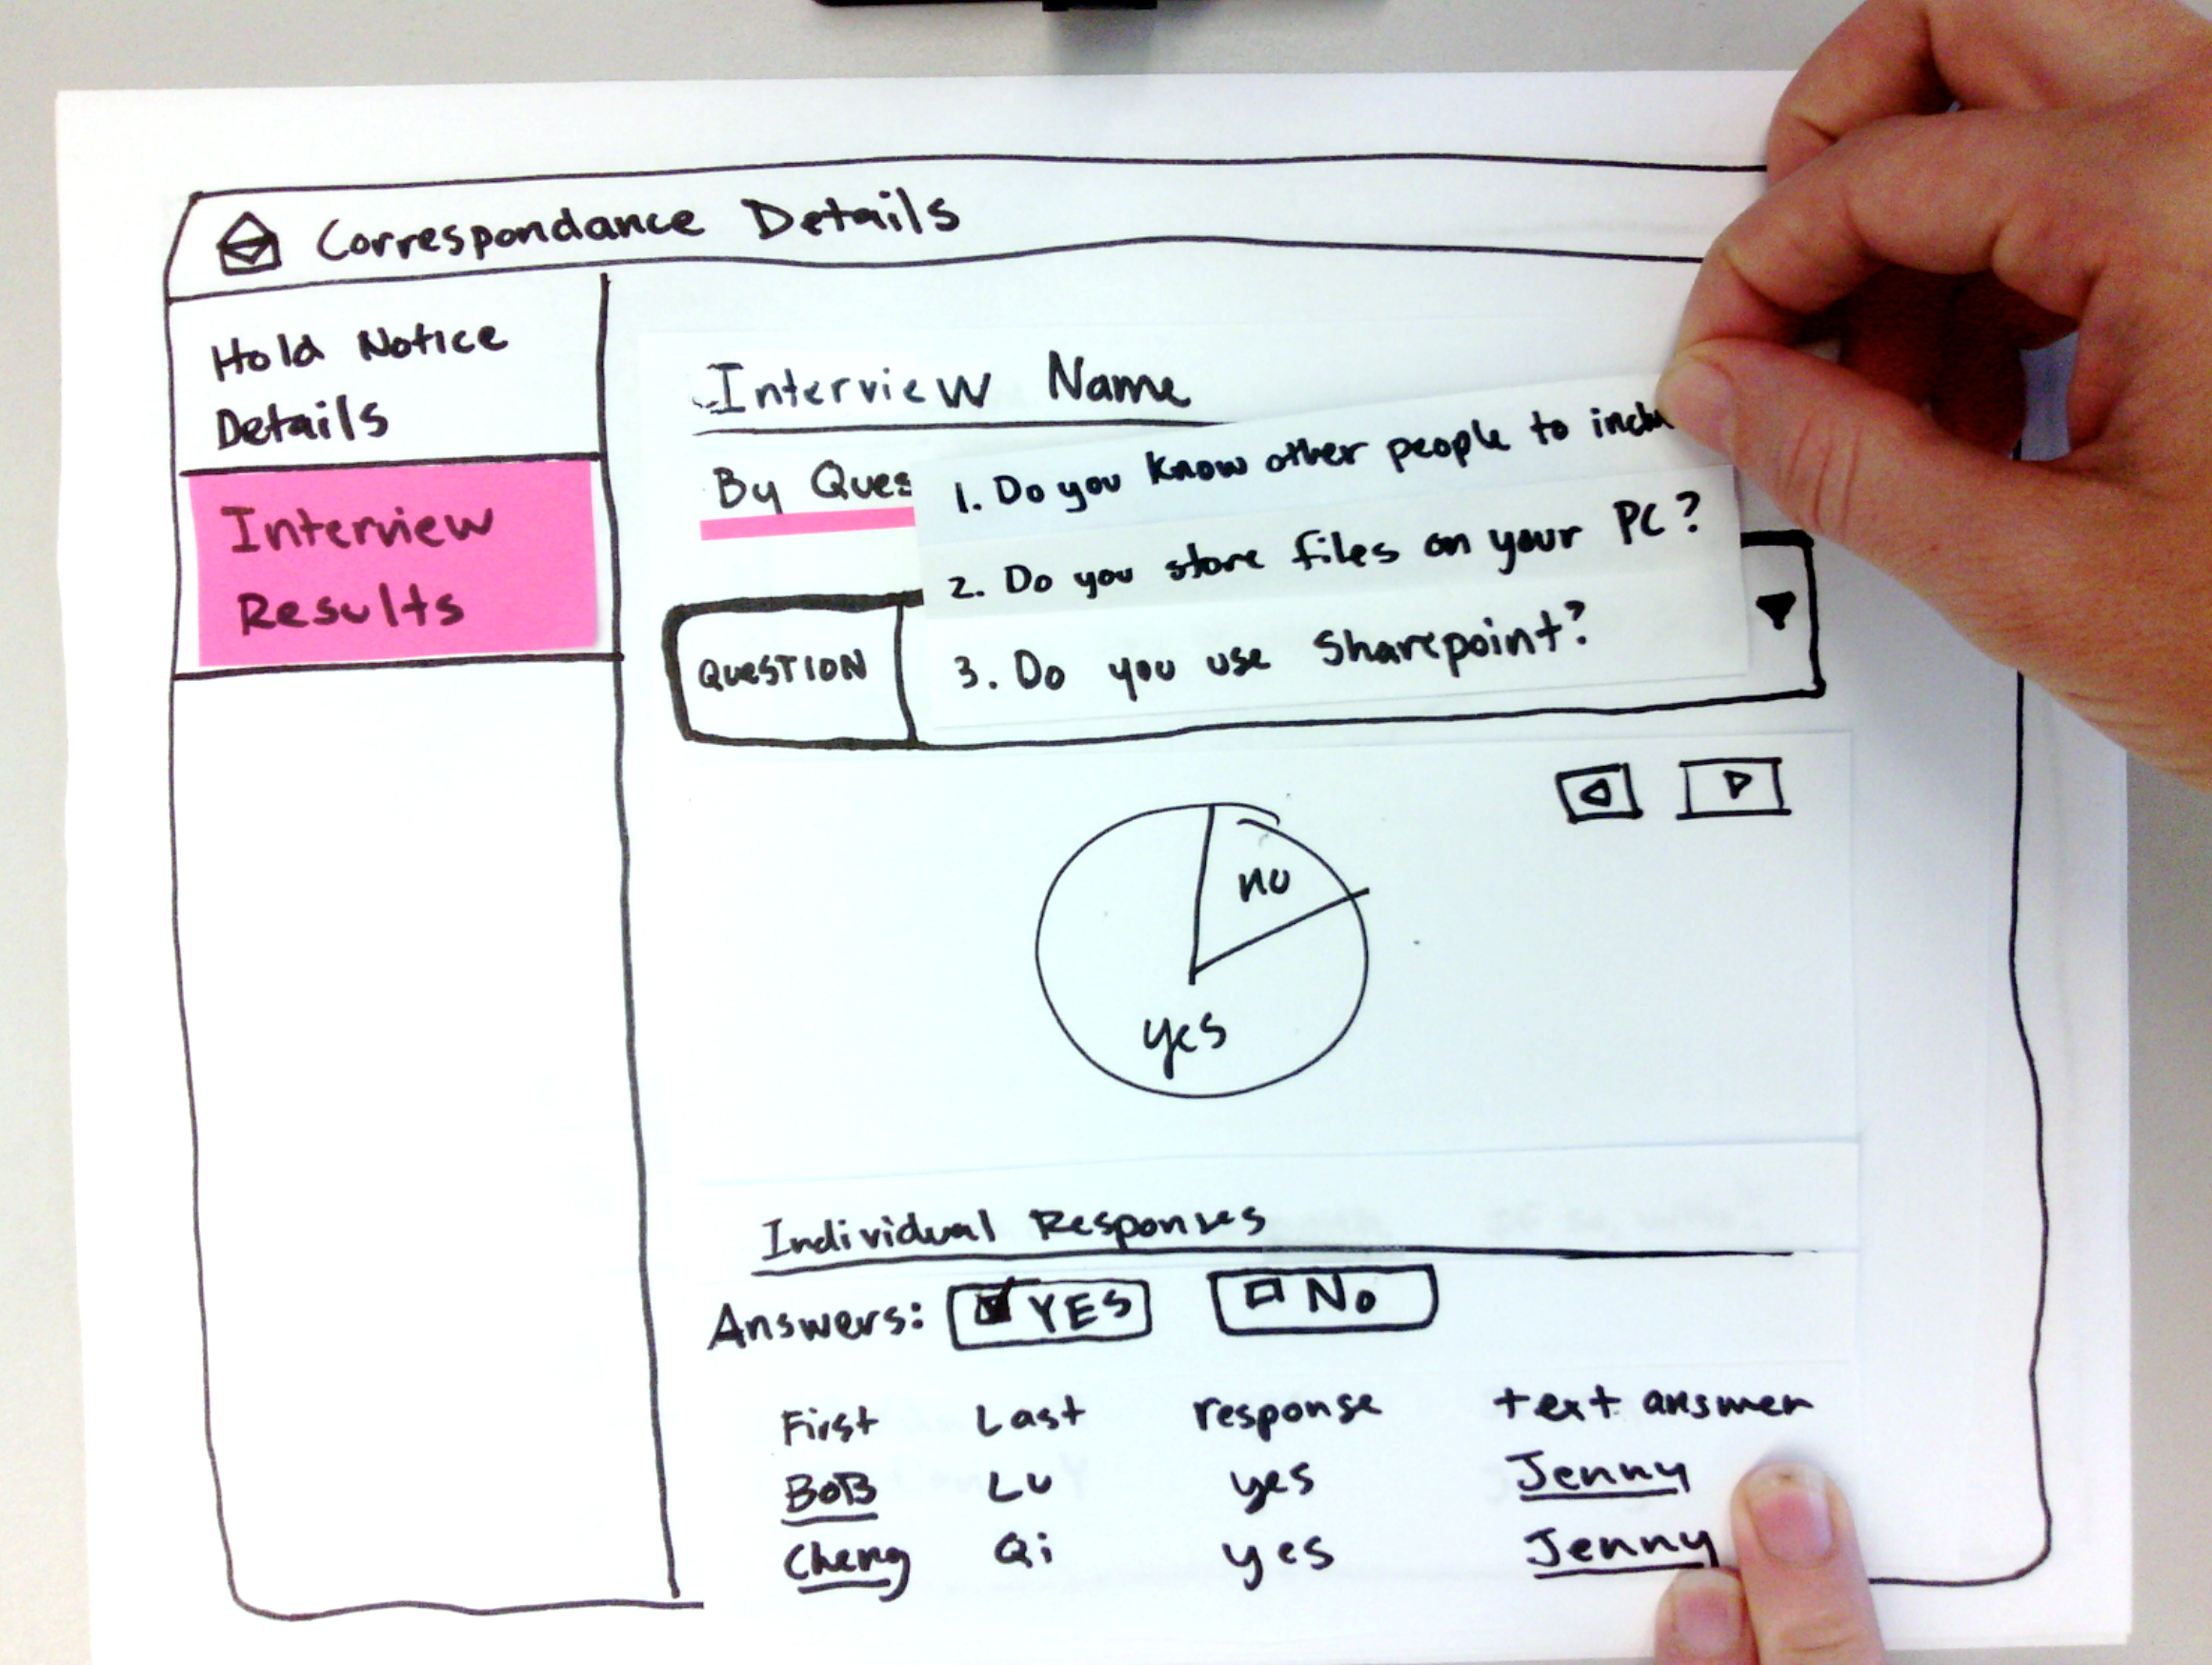 Correspondance Details
Hold Notice
Details
Interview
Results
Interview Name
By Ques
1. Do you know other people to inclu
2. Do you store files on your PC?
3. Do you use Sharepoint?
QUESTION
no
yes
Individual Responses
Answers: YES No
First Last response text answer
BoB Lu yes Jenny
Cheng Qi yes Jenny